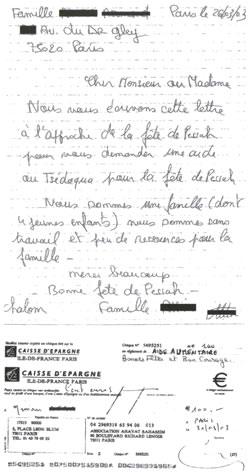 Famille
Paris le 26/03/03
Av. du DR gley
75020 Paris
Cher Monsieur ou Madame
Nous vous écrivons cette lettre
à l'approche de la fête de Pessah
pour vous demander une aide
ou Tsédaqua pour la fête de Pessah
Nous sommes une famille (dont
4 jeunes enfants) nous sommes sans
travail et peu de ressources pour la
famille -
merci beaucoup
- Bonne fête de Pessah -
Shalom Famille
CAISSE D'EPARGNE
ILE-DE-FRANCE PARIS
AIDE ALIMENTAIRE
Bonnes Fêtes et Bon Courage.
CAISSE D'EPARGNE
ILE-DE-FRANCE PARIS
€
(cent euros)
5, PLACE LEON BLUM
75011 PARIS
04 2969319 63 94 00 013
BOULEVARD RICHARD LENOIR
75011 PARIS
100
PARIS